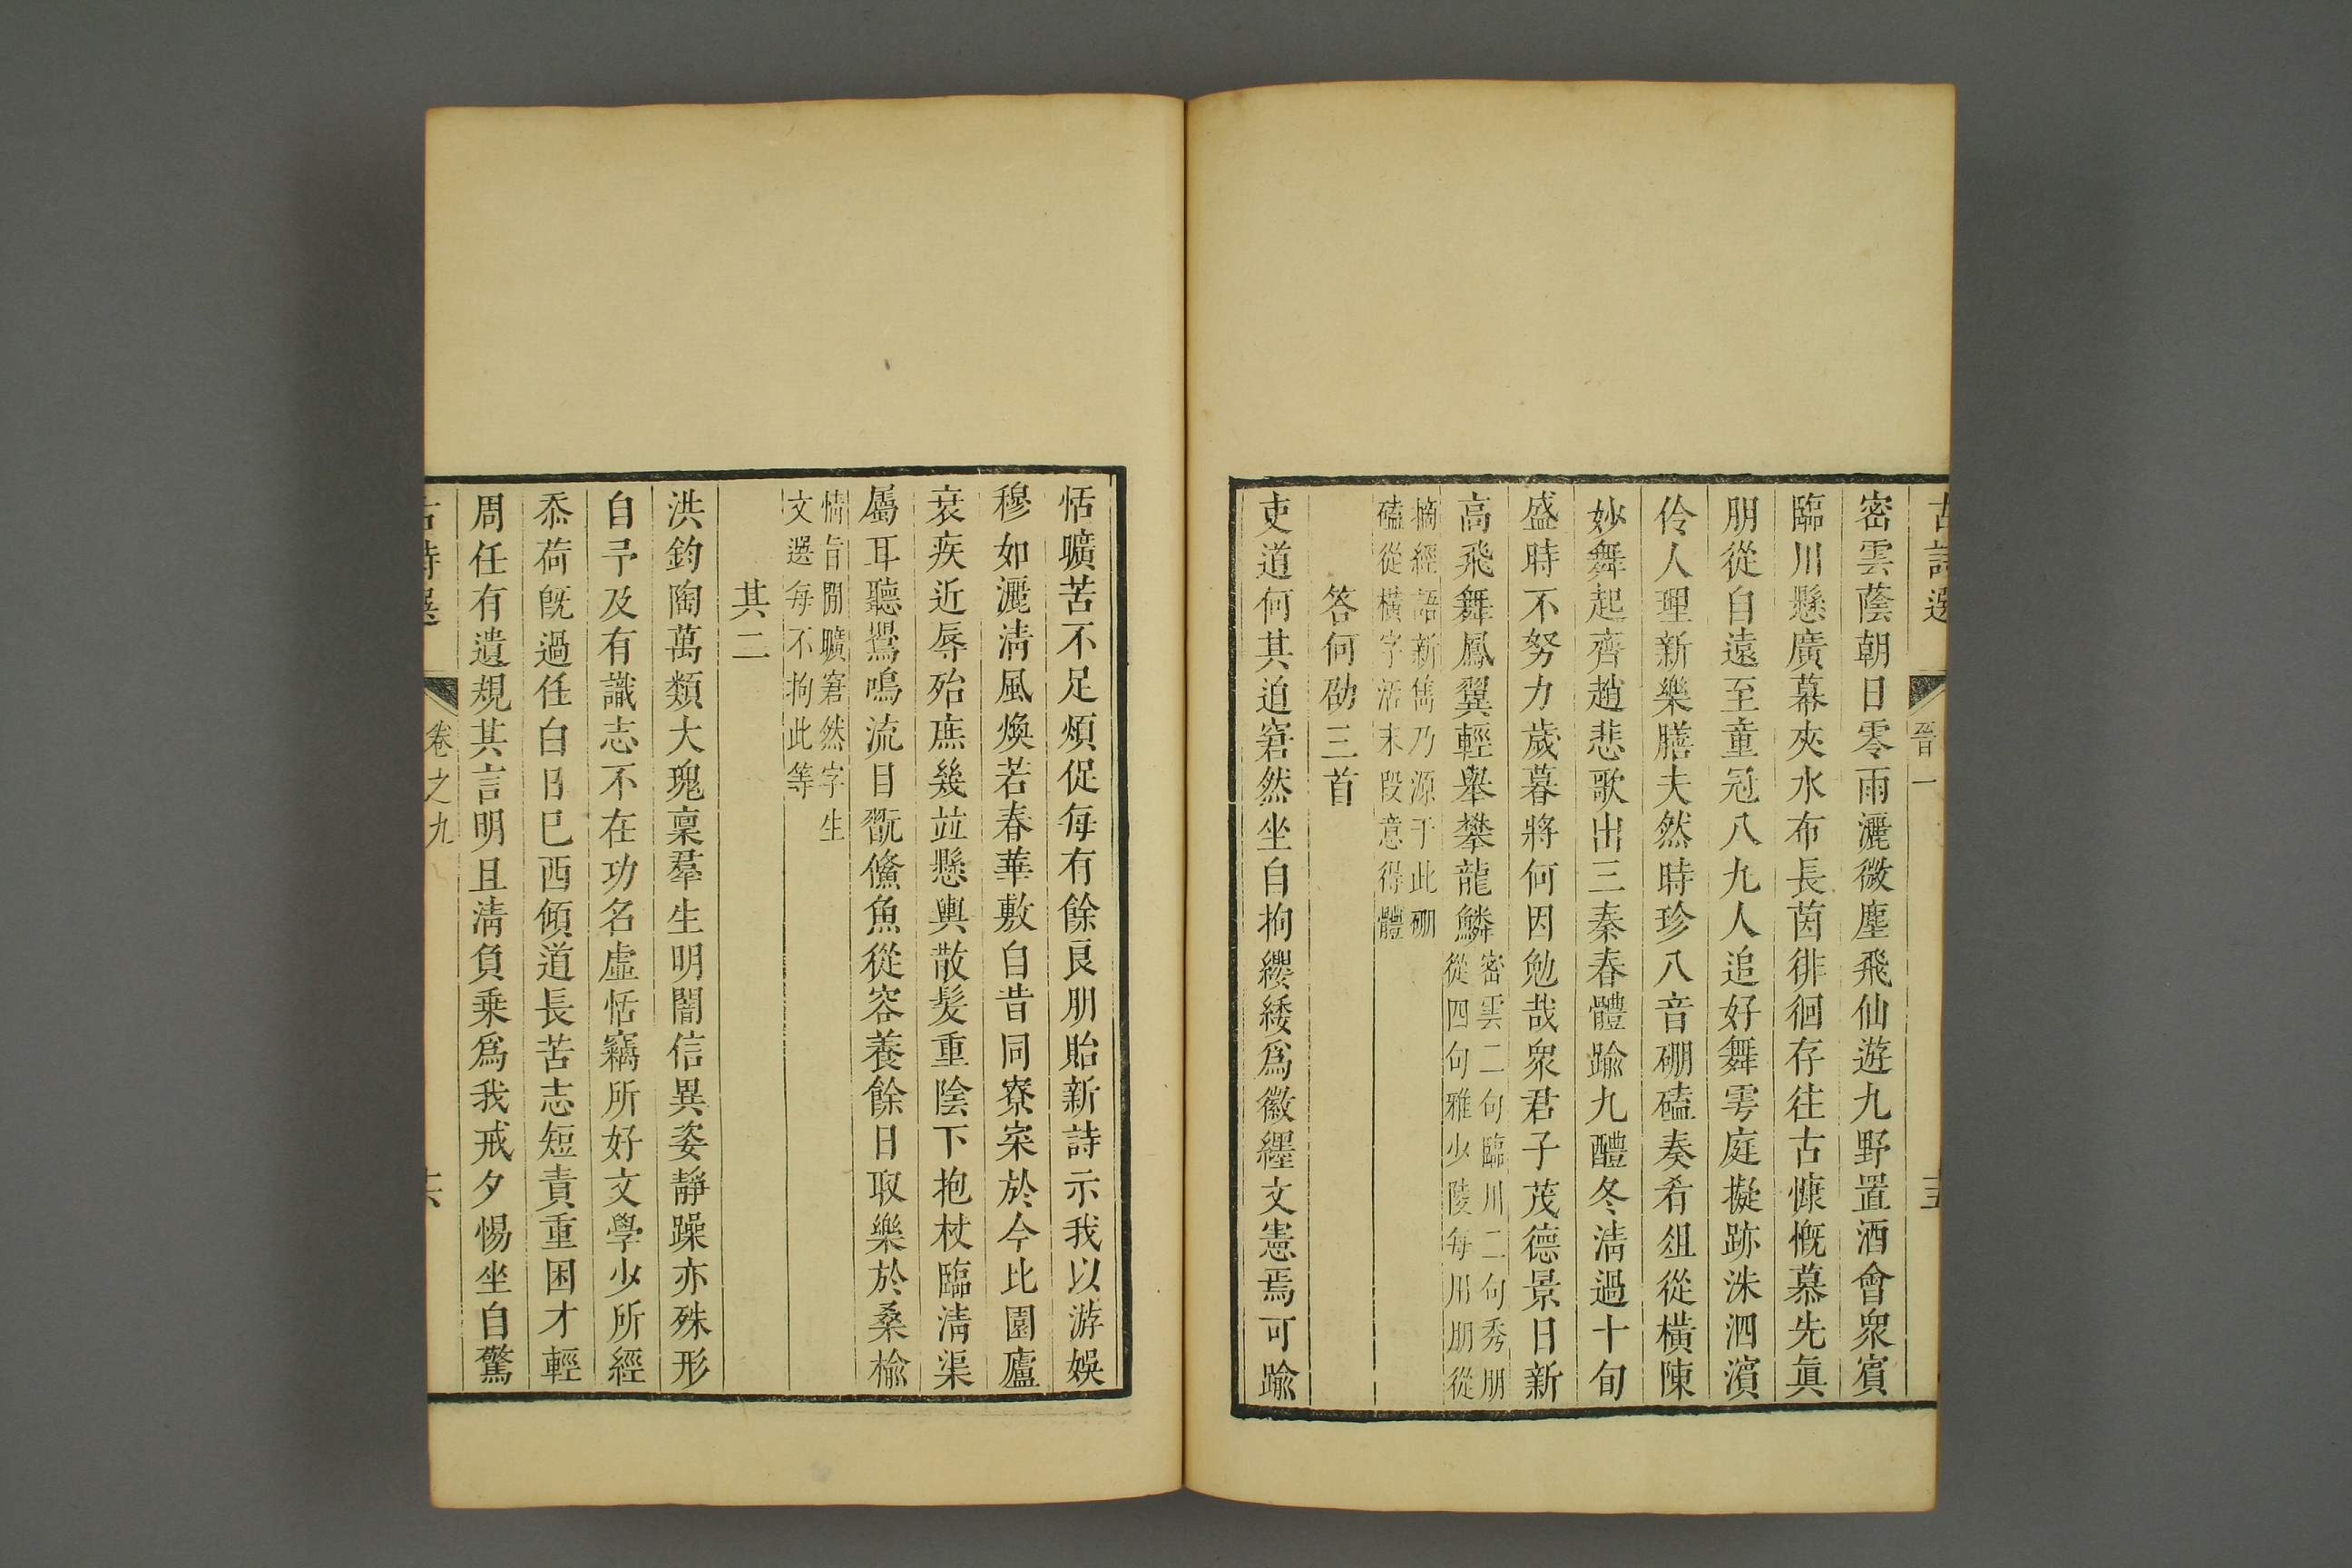 古詩選 晉一 十五
密雲蔭朝日零雨灑微塵飛仙遊九野置酒會衆賓
臨川懸廣幕夾水布長茵徘徊存往古慷慨慕先眞
朋從自遠至童冠八九人追好舞雩庭擬跡洙泗濱
伶人理新樂膳夫然時珍八音硼磕奏肴俎從橫陳
妙舞起齊趙悲歌出三秦春醴踰九醞冬淸過十旬
盛時不努力歲暮將何因勉哉衆君子茂德景日新
高飛舞鳳翼輕舉攀龍鱗
密雲二句臨川二句秀朋
從四句雅少陵每用朋從
摘經語新雋乃源于此硼
磕從橫字活末段意得體
答何劭三首
吏道何其迫窘然坐自拘纓緌爲徽纆文憲焉可踰
恬曠苦不足煩促每有餘良朋貽新詩示我以游娛
穆如灑淸風煥若春華敷自昔同寮寀於今比園廬
衰疾近辱殆庶幾並懸輿散髮重陰下抱杖臨淸渠
屬耳聽鸎鳴流目翫鯈魚從容養餘日取樂於桑榆
情旨閒曠窘然字生
文選每不拘此等
其二
洪鈞陶萬類大塊稟羣生明闇信異姿靜躁亦殊形
自予及有識志不在功名虛恬竊所好文學少所經
忝荷旣過任白日已西傾道長苦志短責重困才輕
周任有遺規其言明且淸負乗爲我戒夕惕坐自驚
古詩選 卷之九 十六